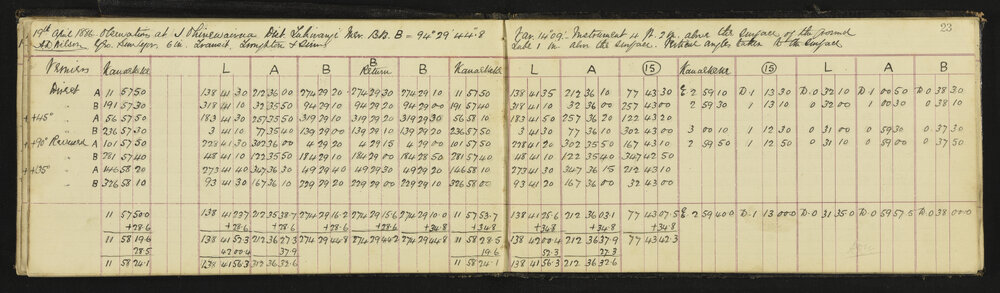 19th April 1886 Observations at J Ohinewairua Dist Tuhwangi Mer. B.B. = 94° 29' 44".8
Var. 14°09'. Instrument 4 ft. 2 in. above the surface of the ground
23
A.D. Wilson Geo. Surveyor. 6 in. Transit. Troughton & Simms
Tube 1 in abv the surface. Vertical angles taken to the surface
Verniers L A B B Return B L A (15) (15) L A B
Direct A 11 57 50 138 41 30 212 36 00 274 29 20 274 29 30 274 29 10 11 57 50 138 41 35 212 36 10 77 43 30 E 2 59 10 D. 1 13 30 D. 0 32 10 D. 1 00 50 D. 0 38 30
B 191 57 30 318 41 10 32 35 50 94 29 10 94 29 20 94 29 00 191 57 40 318 41 10 32 36 00 257 43 00 2 59 30 1 13 10 0 32 00 1 00 30 0 38 10
+45° A 56 57 50 183 41 30 257 35 50 319 29 10 319 29 20 319 29 30 56 58 10 183 41 50 257 36 20 122 43 20
B 236 57 30 3 41 10 77 35 40 139 29 00 139 29 10 139 29 20 236 57 50 3 41 30 77 36 10 302 43 00 3 00 10 1 12 30 0 31 00 0 59 30 0 37 30
+90° Reversed A 101 57 50 228 41 30 302 36 00 4 29 20 4 29 15 4 29 00 101 57 50 228 41 20 302 35 50 167 43 10 2 59 50 1 12 50 0 31 10 0 59 00 0 37 50
B 281 57 40 48 41 10 122 35 50 184 29 10 184 29 00 184 28 50 281 57 40 48 41 10 122 35 40 347 42 50
+135° A 146 58 20 273 41 40 347 36 30 49 29 40 49 29 30 49 29 20 146 58 10 273 41 30 347 36 15 212 43 10
B 326 58 10 93 41 30 167 36 10 229 29 20 229 29 00 229 29 10 326 58 00 93 41 20 167 36 00 32 43 00
11 57 50.0 138 41 23.7 212 35 38.7 274 29 16.2 274 29 15.6 274 29 10.0 11 57 53.7 138 41 25.6 212 36 03.1 77 43 07.5 E 2 59 40.0 D. 1 13 00.0 D. 0 31 35.0 D. 0 59 57.5 D. 0 38 00.0
+28.6 +28.6 +28.6 +28.6 +28.6 +34.8 +34.8 +34.8 +34.8 +34.8
11 58 19.6 138 41 52.3 212 36 27.3 274 29 44.8 274 29 44.2 274 29 44.8 11 58 28.5 138 42 00.4 212 36 37.9 77 43 42.3
28.5 42 00.4 37.9 19.6 52.3 27.3
11 58 24.1 138 41 56.3 212 36 32.6 11 58 24.1 138 41 56.3 212 36 32.6